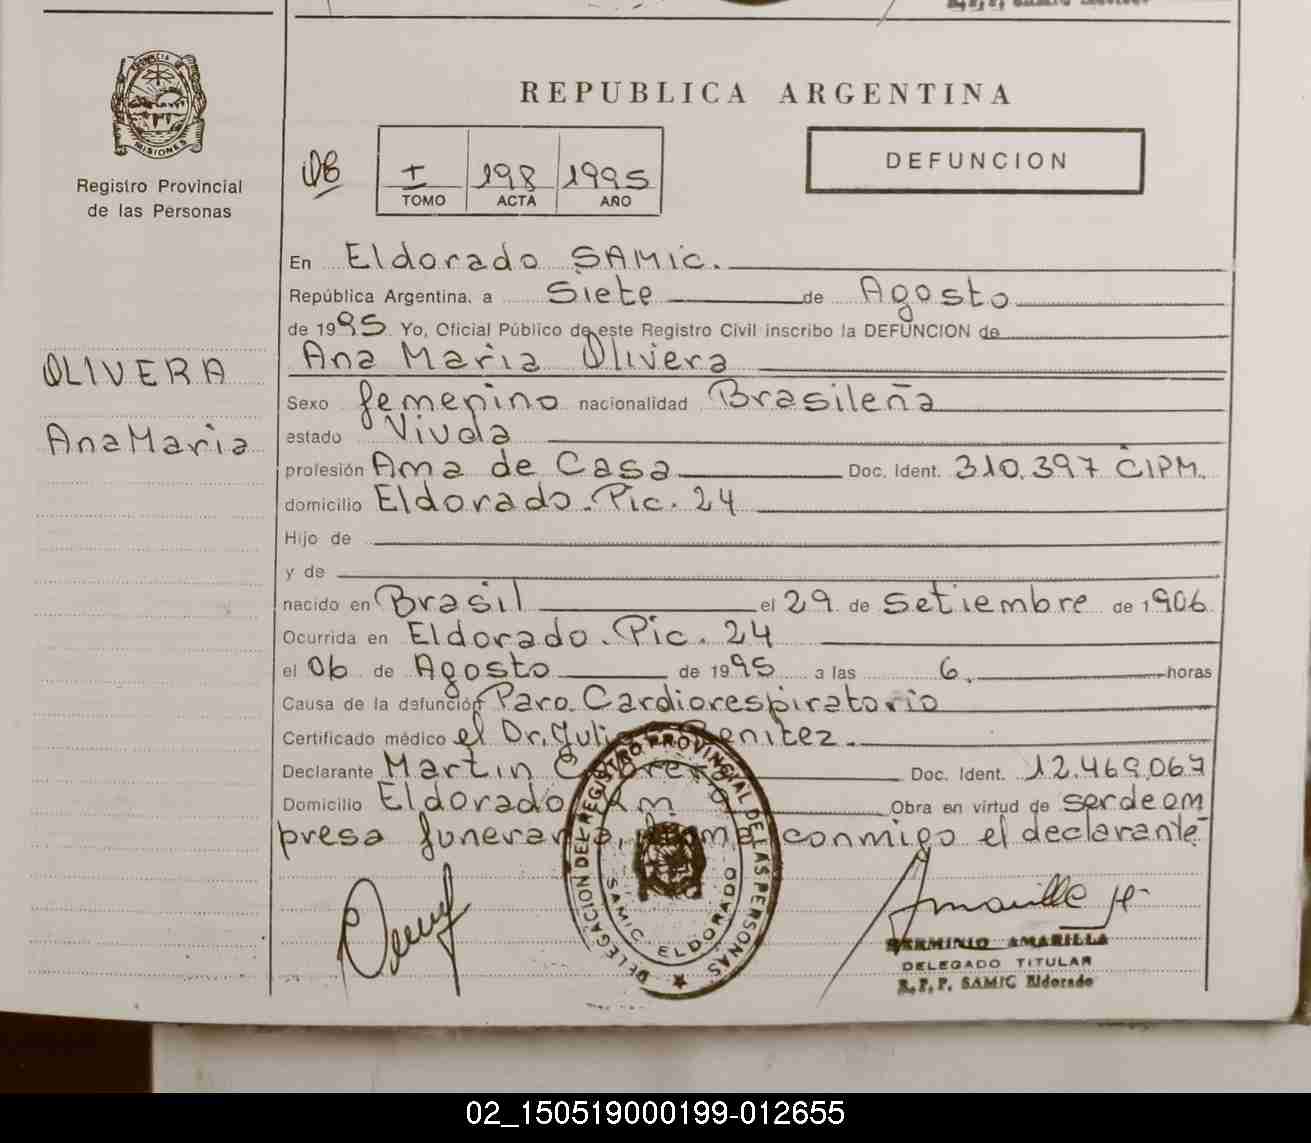 REPUBLICA ARGENTINA
PROVINCIA DE MISIONES
Registro Provincial
de las Personas
I 198 1995
TOMO ACTA AÑO
DEFUNCION
OLIVERA
Ana Maria
En Eldorado SAMIC.
República Argentina, a Siete de Agosto
de 1995 Yo, Oficial Público de este Registro Civil inscribo la DEFUNCION de
Ana Maria Olivera
Sexo femenino nacionalidad Brasileña
estado Viuda
profesión Ama de Casa Doc. Ident. 310.397 CIPM.
domicilio Eldorado. Pic. 24
Hijo de
y de
nacido en Brasil el 29 de Setiembre de 1906
Ocurrida en Eldorado. Pic. 24
el 06 de Agosto de 1995 a las 6. horas
Causa de la defunción Paro Cardiorespiratorio
Certificado médico el Dr. Julio Benitez.
Declarante Martin Doc. Ident. 12.469.067
Domicilio Eldorado Km Obra en virtud de ser de em
presa funeraria, firma conmigo el declarante
DELEGACION DEL REGISTRO PROVINCIAL DE LAS PERSONAS
SAMIC ELDORADO
Amarilla H
HERMINIO AMARILLA
DELEGADO TITULAR
R.P.P. SAMIC Eldorado
02_150519000199-012655